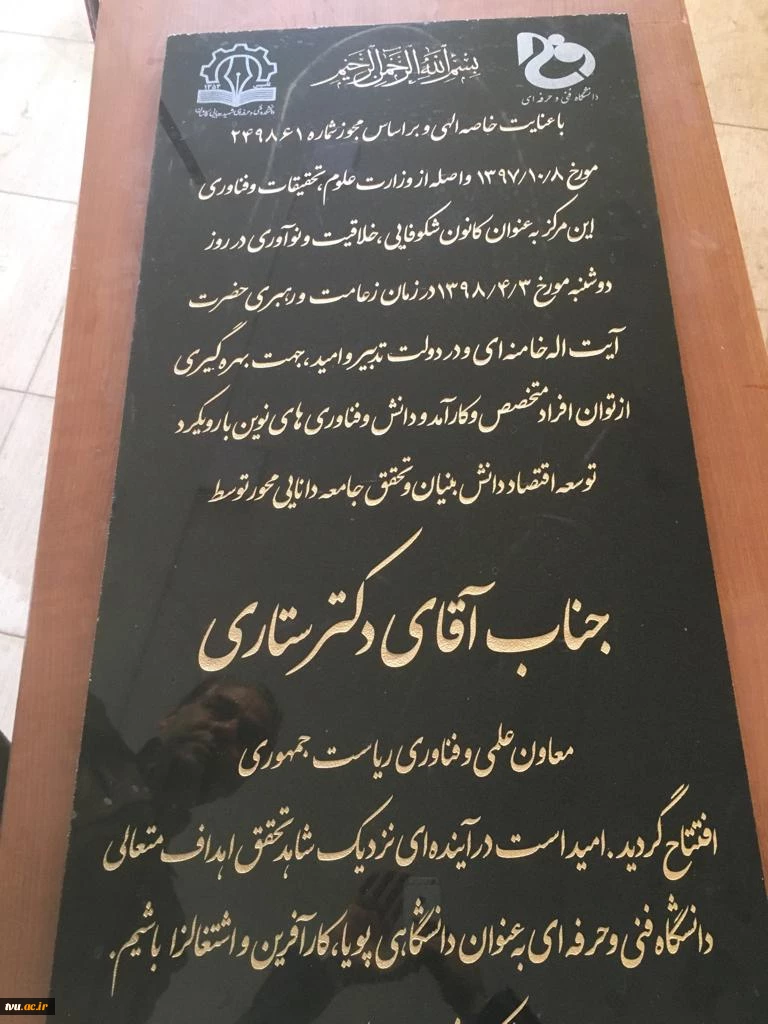 بسم الله الرحمن الرحیم
۱۳۵۳
دانشگاه فنی و حرفه ای
با عنایت خاصه الهی و بر اساس مجوز شماره ۲۴۹۸۶۱
مورخ ۱۳۹۷/۱۰/۸ واصله از وزارت علوم، تحقیقات و فناوری
این مرکز به عنوان کانون شکوفایی، خلاقیت و نوآوری در روز
دوشنبه مورخ ۱۳۹۸/۴/۳ در زمان زعامت و رهبری حضرت
آیت اله خامنه ای و در دولت تدبیر و امید، جهت بهره گیری
از توان افراد متخصص و کارآمد و دانش و فناوری های نوین با رویکرد
توسعه اقتصاد دانش بنیان و تحقق جامعه دانایی محور توسط
جناب آقای دکتر ستاری
معاون علمی و فناوری ریاست جمهوری
افتتاح گردید. امید است در آینده ای نزدیک شاهد تحقق اهداف متعالی
دانشگاه فنی و حرفه ای به عنوان دانشگاهی پویا، کارآفرین و اشتغالزا باشیم.
tvu.ac.ir